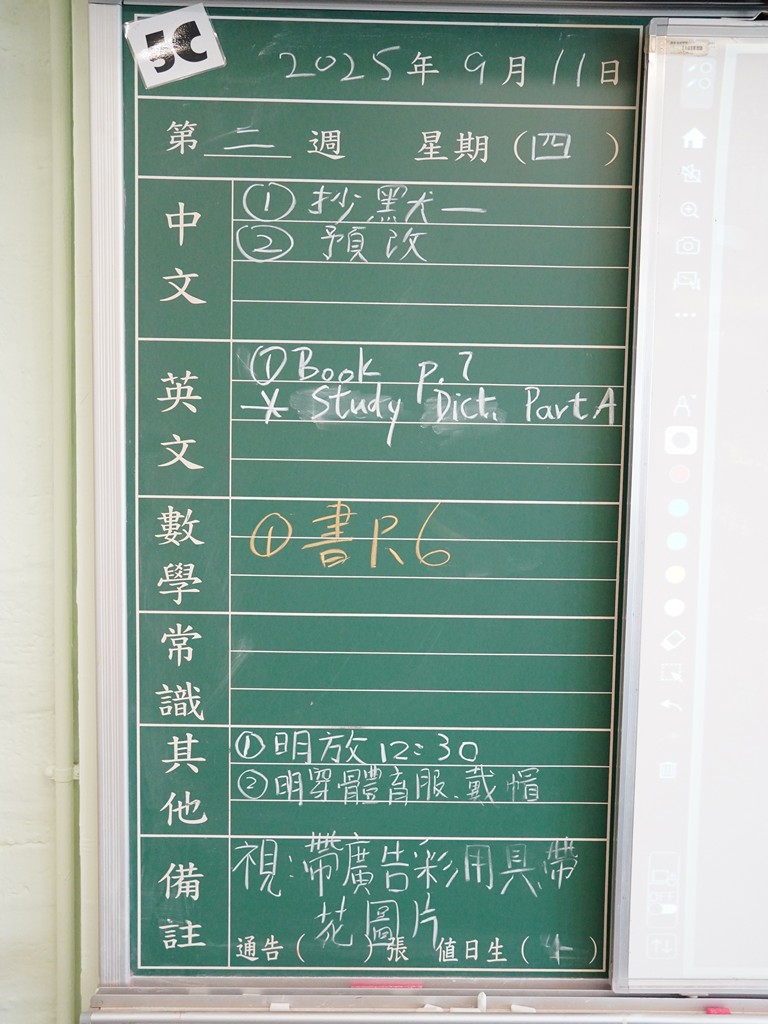 5C
2025年9月11日
第二週 星期(四)
中文
① 抄默一
② 預改
英文
① Book p.7
* Study Dict. Part A
數學
① 書P.6
常識
其他
① 明放12:30
② 明穿體育服.戴帽
備註
視:帶廣告彩用具帶
花圖片
通告( )張 值日生( )